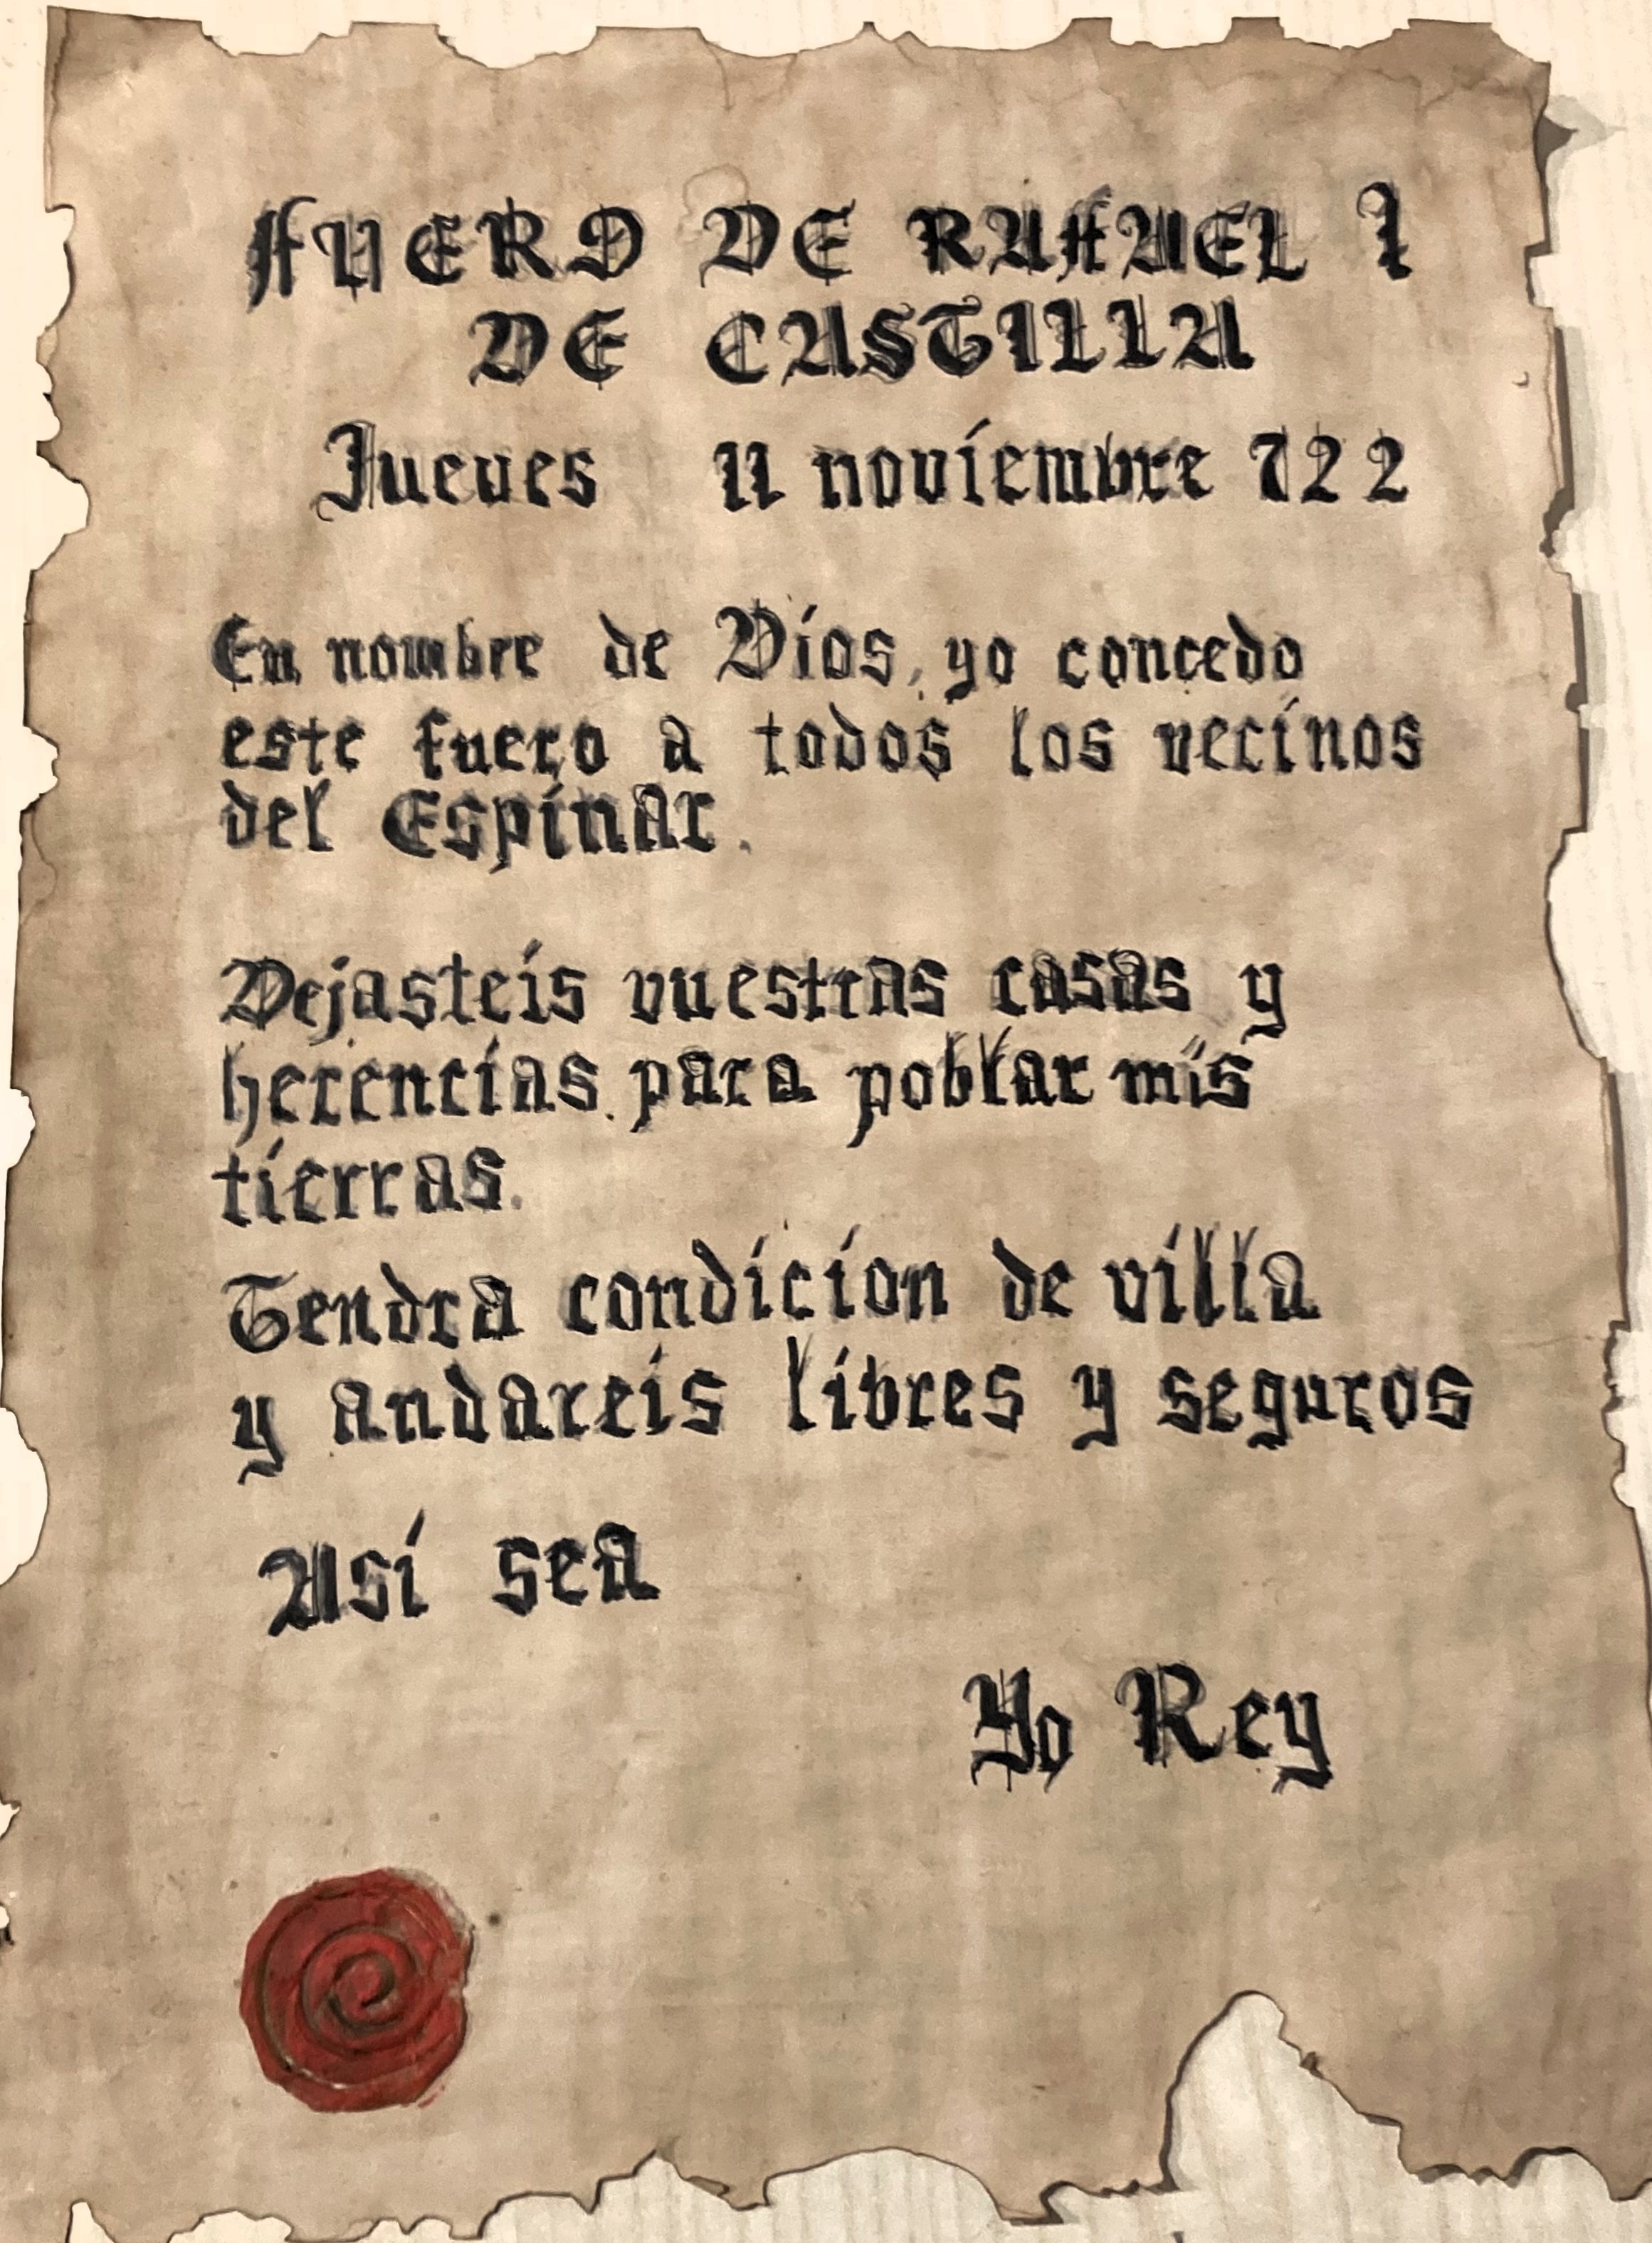 FUERO DE RAFAEL I
DE CASTILLA
Jueves 11 noviembre 722
En nombre de Dios, yo concedo
este fuero a todos los vecinos
del Espinar.
Dejasteis vuestras casas y
herencias para poblar mis
tierras.
Tendra condicion de villa
y andareis libres y seguros
Asi sea
Yo Rey